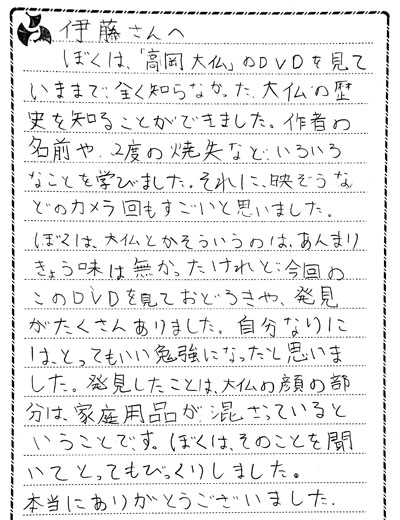 伊藤さんへ
ぼくは、「高岡大仏」のDVDを見て
いままで、全く知らなかった、大仏の歴
史を知ることができました。作者の
名前や、2度の焼失など、いろいろ
なことを学びました。それに、映ぞうな
どのカメラ回もすごいと思いました。
ぼくは、大仏とかそういうのは、あんまり
きょう味は無かったけれど、今回の
このDVDを見ておどろきや、発見
がたくさんありました。自分なりに
は、とってもいい勉強になったと思いま
した。発見したことは、大仏の顔の部
分は、家庭用品が、混ざっていると
いうことです。ぼくは、そのことを聞
いてとってもびっくりしました。
本当にありがとうございました.